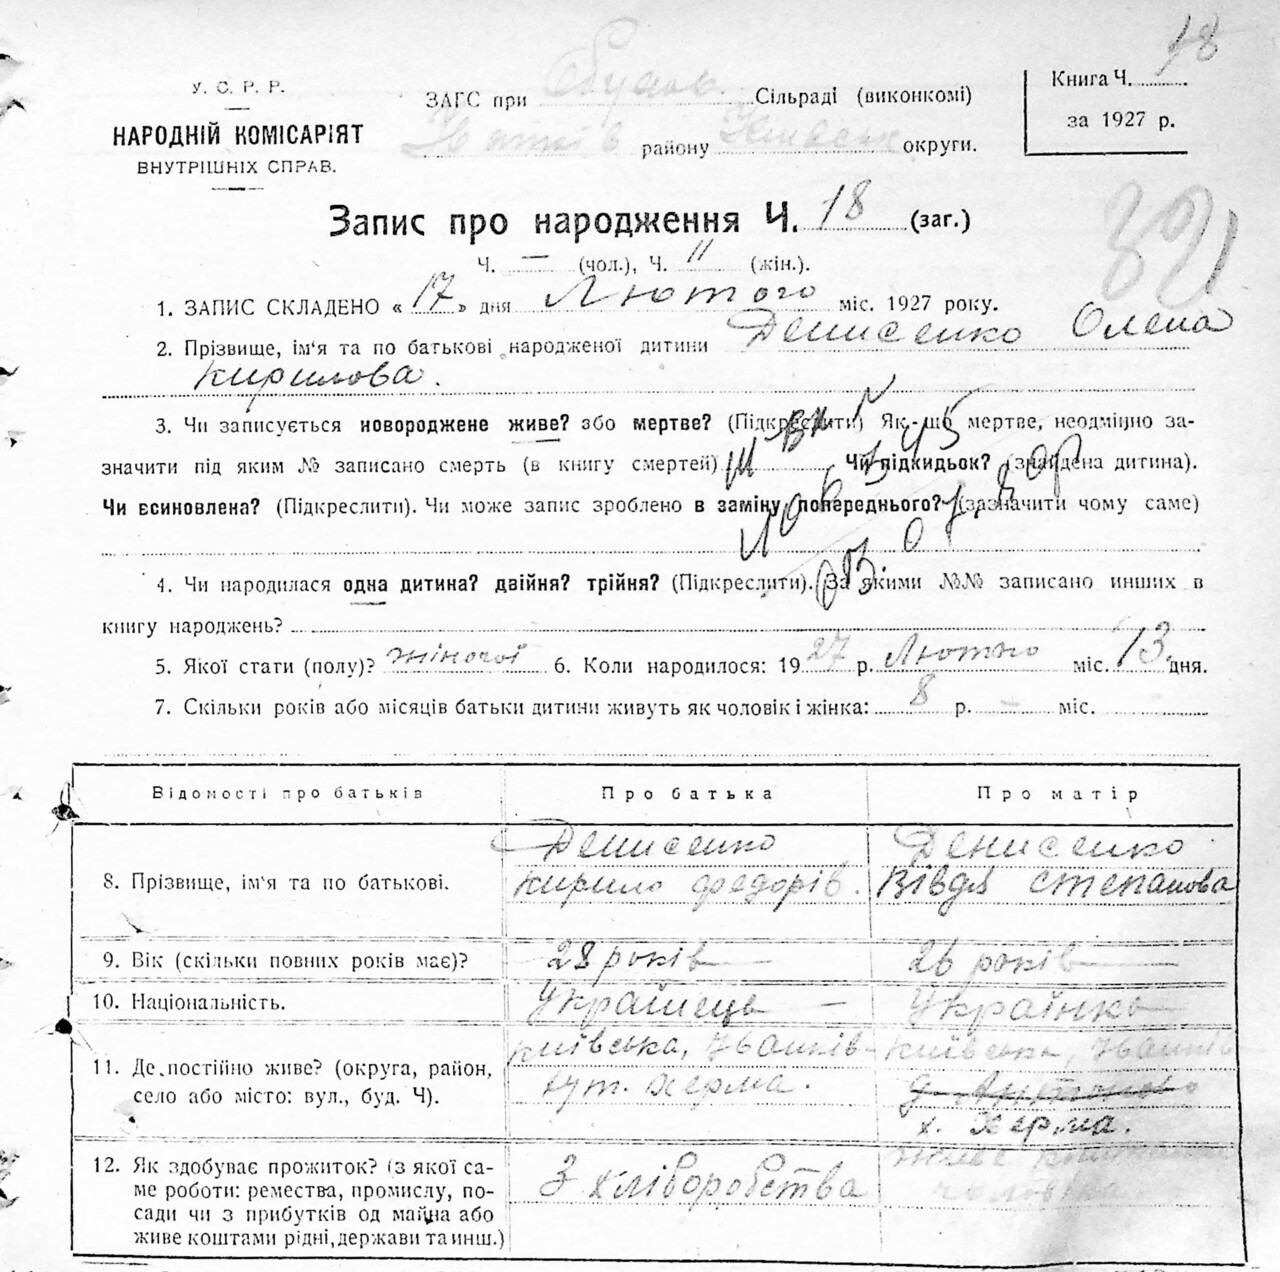 18
У. С. Р. Р.
НАРОДНІЙ КОМІСАРІЯТ
ВНУТРІШНІХ СПРАВ.
ЗАГС при Сільраді (виконкомі)
району округи.
Книга Ч.
за 1927 р.
Запис про народження Ч. 18 (заг.)
Ч. — (чол.), Ч. 11 (жін.).
1. ЗАПИС СКЛАДЕНО « 17 » дня Лютого міс. 1927 року.
2. Прізвище, ім'я та по батькові народженої дитини Денисенко Олена
Кирилова.
3. Чи записується новороджене живе? або мертве? (Підкреслити) Як-що мертве, неодмінно за-
значити під яким № записано смерть (в книгу смертей) Чи підкидьок? (знайдена дитина).
Чи всиновлена? (Підкреслити). Чи може запис зроблено в заміну попереднього? (зазначити чому саме)
4. Чи народилася одна дитина? двійня? трійня? (Підкреслити). За якими №№ записано инших в
книгу народжень?
5. Якої стати (полу)? жіночої 6. Коли народилося: 1927 р. Лютого міс. 13 дня.
7. Скільки років або місяців батьки дитини живуть як чоловік і жінка: 8 р. – міс.
Відомості про батьків Про батька Про матір
8. Прізвище, ім'я та по батькові. Денисенко Кирило Федорів. Денисенко Вівдя Степанова
9. Вік (скільки повних років має)? 28 років 26 років
10. Національність. Українець — Українка
11. Де постійно живе? (округа, район, село або місто: вул., буд. Ч). Київська, Іванків- хут. Херма. Київська, х. Херма.
12. Як здобуває прожиток? (з якої са-
ме роботи: ремества, промислу, по-
сади чи з прибутків од майна або
живе коштами рідні, держави та инш.) З хліборобства